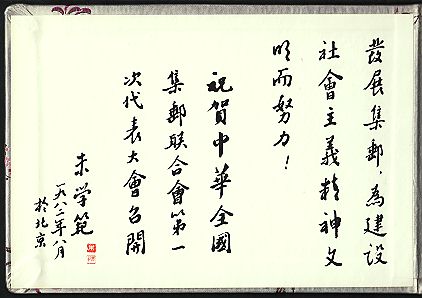 發展集郵,為建設
社會主義精神文
明而努力!
祝賀中华全國
集郵联合會第一
次代表大會召開
朱学範
一九八二年八月
於北京